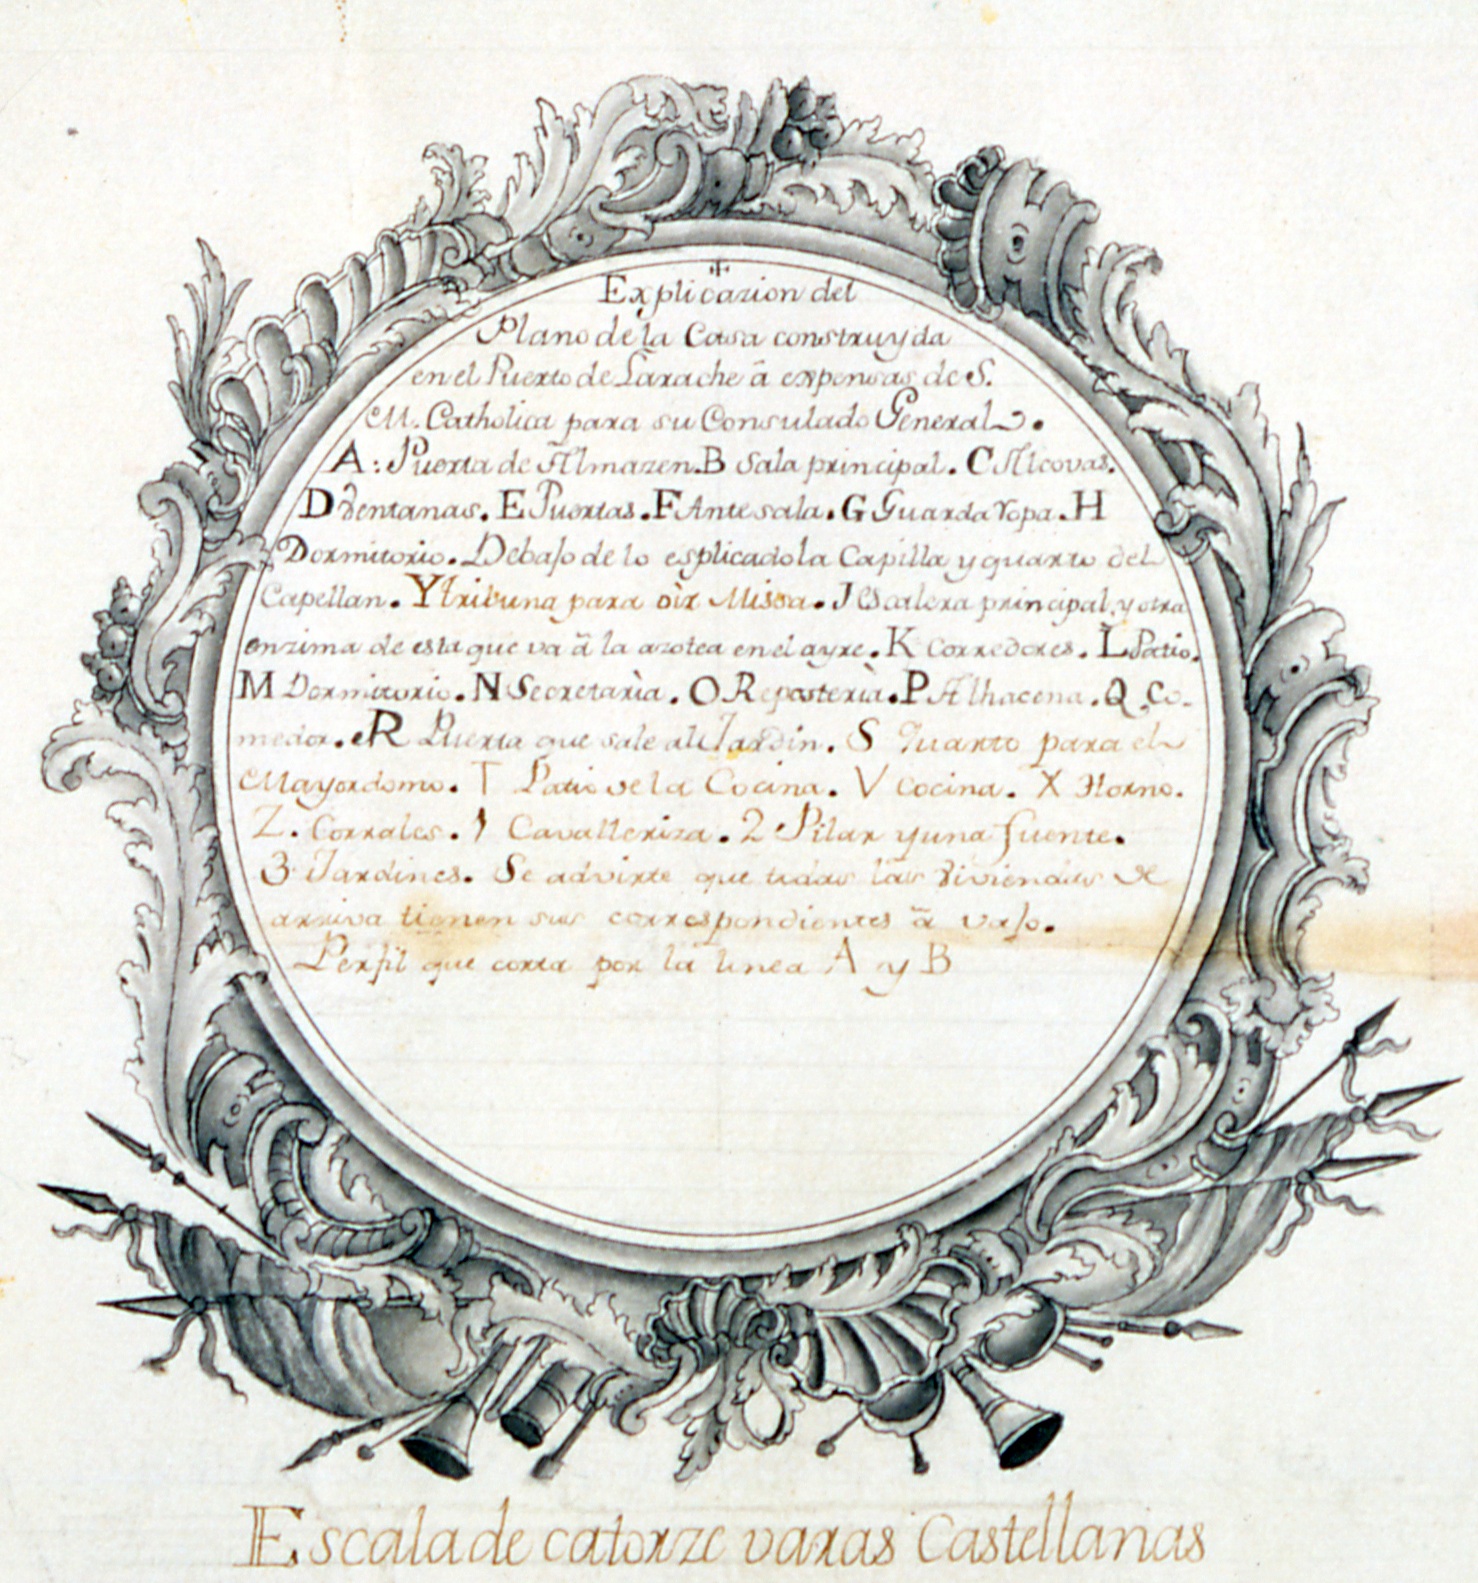 Explicazion del
Plano de la Casa construyda
en el Puerto de Larache â expensas de S.
M. Catholica para su Consulado General.
A: Puerta de Almazen. B Sala principal. C Alcovas.
D Ventanas. E Puertas. F Antesala. G Guarda Ropa. H
Dormitorio. Debajo de lo esplicado la Capilla y quarto del
Capellan. Y tribuna para oìr Missa. J Escalera principal, y otra
enzima de esta que va â la azotea en el ayre. K Corredores. L Patio.
M Dormitorio. N Secretarìa. O Reposterìa. P Alhacena. Q Co-
medor. R Puerta que sale al Jardin. S Quarto para el
Mayordomo. T Patio de la Cocina. V Cocina. X Horno.
Z. Corrales. 1 Cavalleriza. 2 Pilar y una fuente.
3 Jardines. Se advirte que todas las viviendas de
arriva tienen sus correspondientes â vajo.
Perfil que corta por la linea A y B
Escala de catorze varas Castellanas